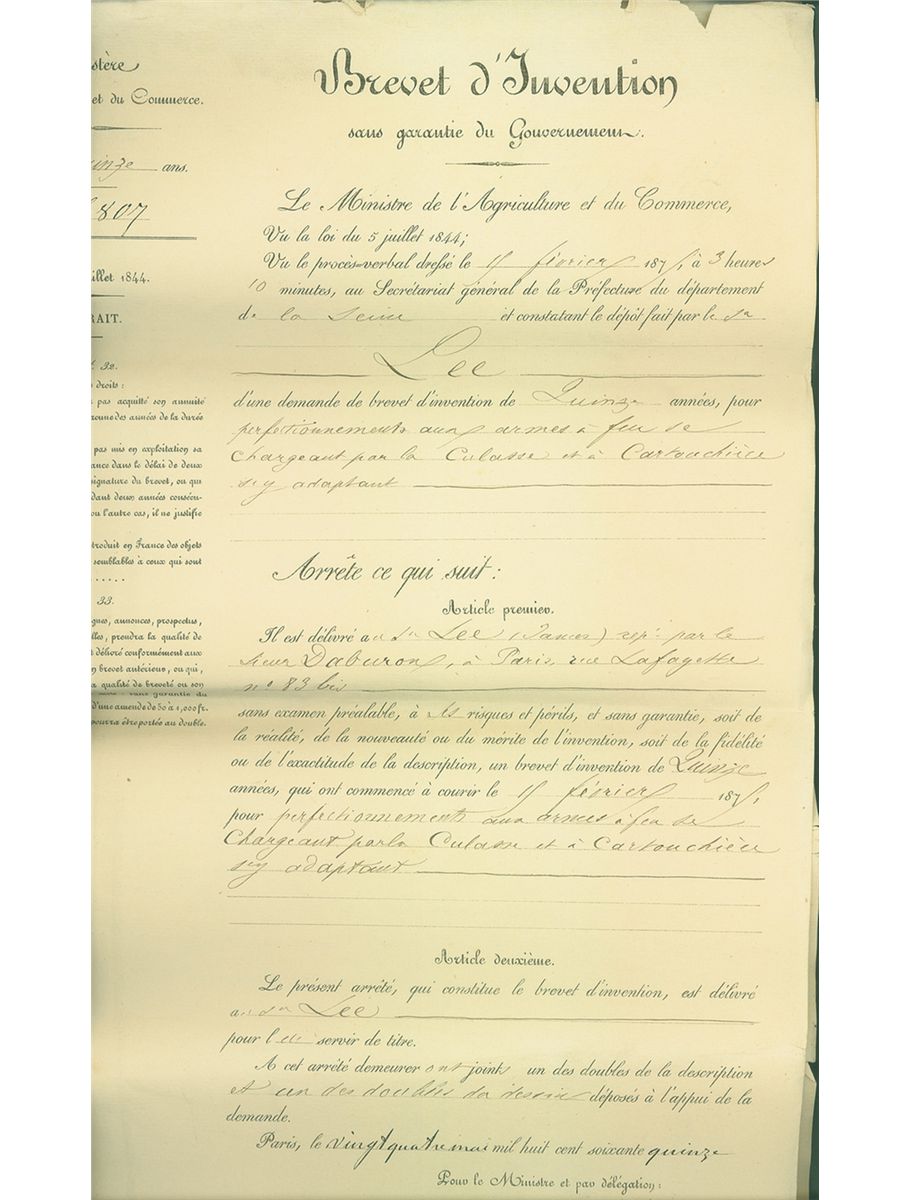 stère
et du Commerce.
inze ans.
807
illet 1844.
RAIT.
32.
droits :
pas acquitté son annuité
cune des années de la durée
pas mis en exploitation sa
ance dans le délai de deux
signature du brevet, ou qui
dant deux années consécu-
ou l'autre cas, il ne justifie
troduit en France des objets
semblables à ceux qui sont
.....
33.
gnes, annonces, prospectus,
lles, prendra la qualité de
t délivré conformément aux
n brevet antérieur, ou qui,
a qualité de breveté ou son
sans garantie du
d'une amende de 50 à 1,000 fr.
pourra être porté au double.
Brevet d'Invention
sans garantie du Gouvernement.
Le Ministre de l'Agriculture et du Commerce,
Vu la loi du 5 juillet 1844;
Vu le procès-verbal dressé le 15 février 1875, à 3 heures
10 minutes, au Secrétariat général de la Préfecture du département
de la Seine et constatant le dépôt fait par le Sr
Lee
d'une demande de brevet d'invention de Quinze années, pour
perfectionnements aux armes à feu se
Chargeant par la Culasse et à Cartouchière
s'y adaptant
Arrête ce qui suit :
Article premier.
Il est délivré au Sr Lee (James) rep. par le
Sieur Daburon, à Paris, rue Lafayette
n° 83 bis
sans examen préalable, à ses risques et périls, et sans garantie, soit de
la réalité, de la nouveauté ou du mérite de l'invention, soit de la fidélité
ou de l'exactitude de la description, un brevet d'invention de Quinze
années, qui ont commencé à courir le 15 février 1875,
pour perfectionnements aux armes à feu se
Chargeant par la Culasse et à Cartouchière
s'y adaptant
Article deuxième.
Le présent arrêté, qui constitue le brevet d'invention, est délivré
au Sr Lee
pour lui servir de titre.
A cet arrêté demeureront joints un des doubles de la description
et un des doubles du dessin déposés à l'appui de la
demande.
Paris, le vingt quatre mai mil huit cent soixante quinze
Pour le Ministre et par délégation :